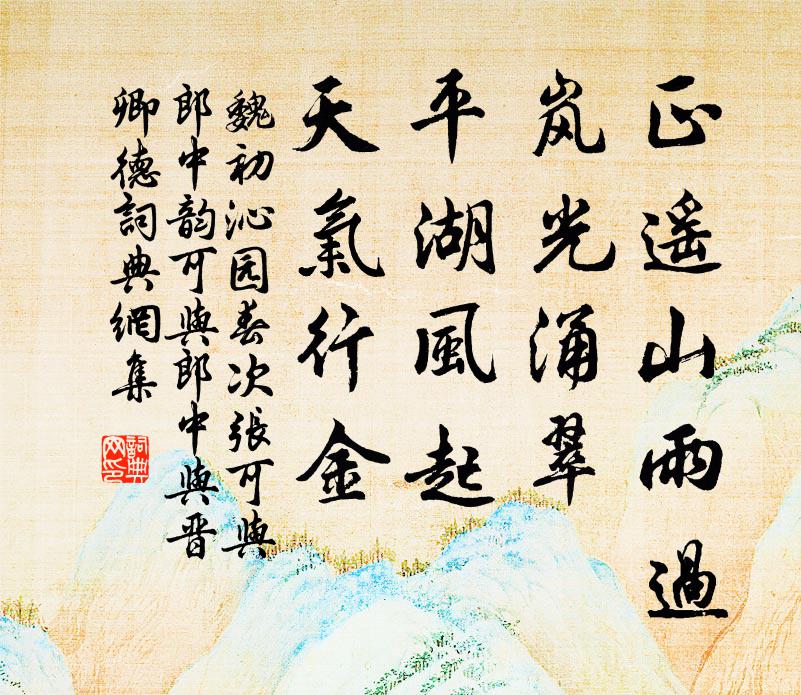 正遥山雨過
岚光涌翠
平湖風起
天氣行金
魏初沁园春次張可與
郎中韵可與郎中與晋
卿德詞典網集
詞典
网印